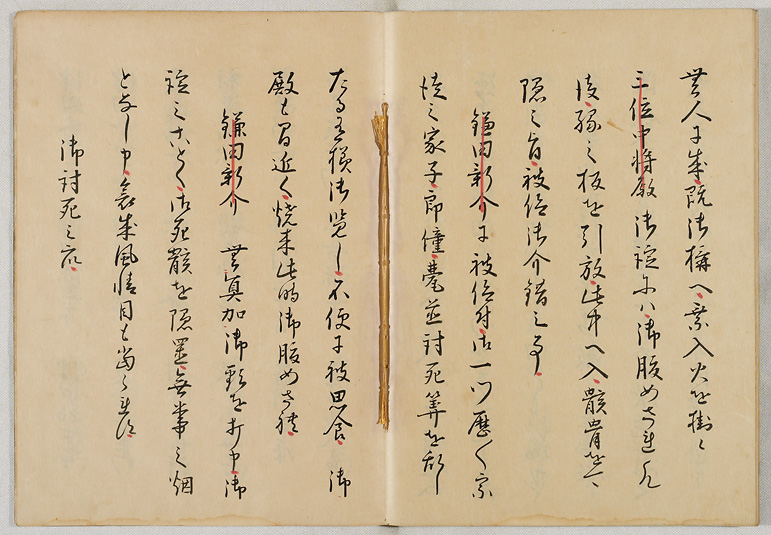 無人に成既御構へ乗入火を懸候
三位中将殿御諚にハ御腹めされ候て
後縁之板を引放此中へ入骸骨を可
隠之旨被仰御介錯之事
鎌田新介に被仰付御一門歴〻宗
徒之家子郎僮甍並討死算を乱し
たる有様御覧し不便に被思食　御
殿も間近く焼来此時御腹めされ
鎌田新介　無冥加御頸を打申御
諚之ことく御死骸を隠置無常之烟
となし申哀成風情目も当られす
御討死之衆